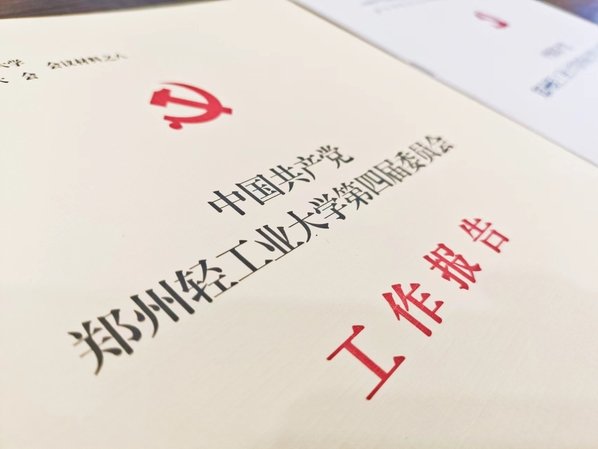 大学
大会 会议材料之八
中国共产党
郑州轻工业大学第四届委员会
工作报告